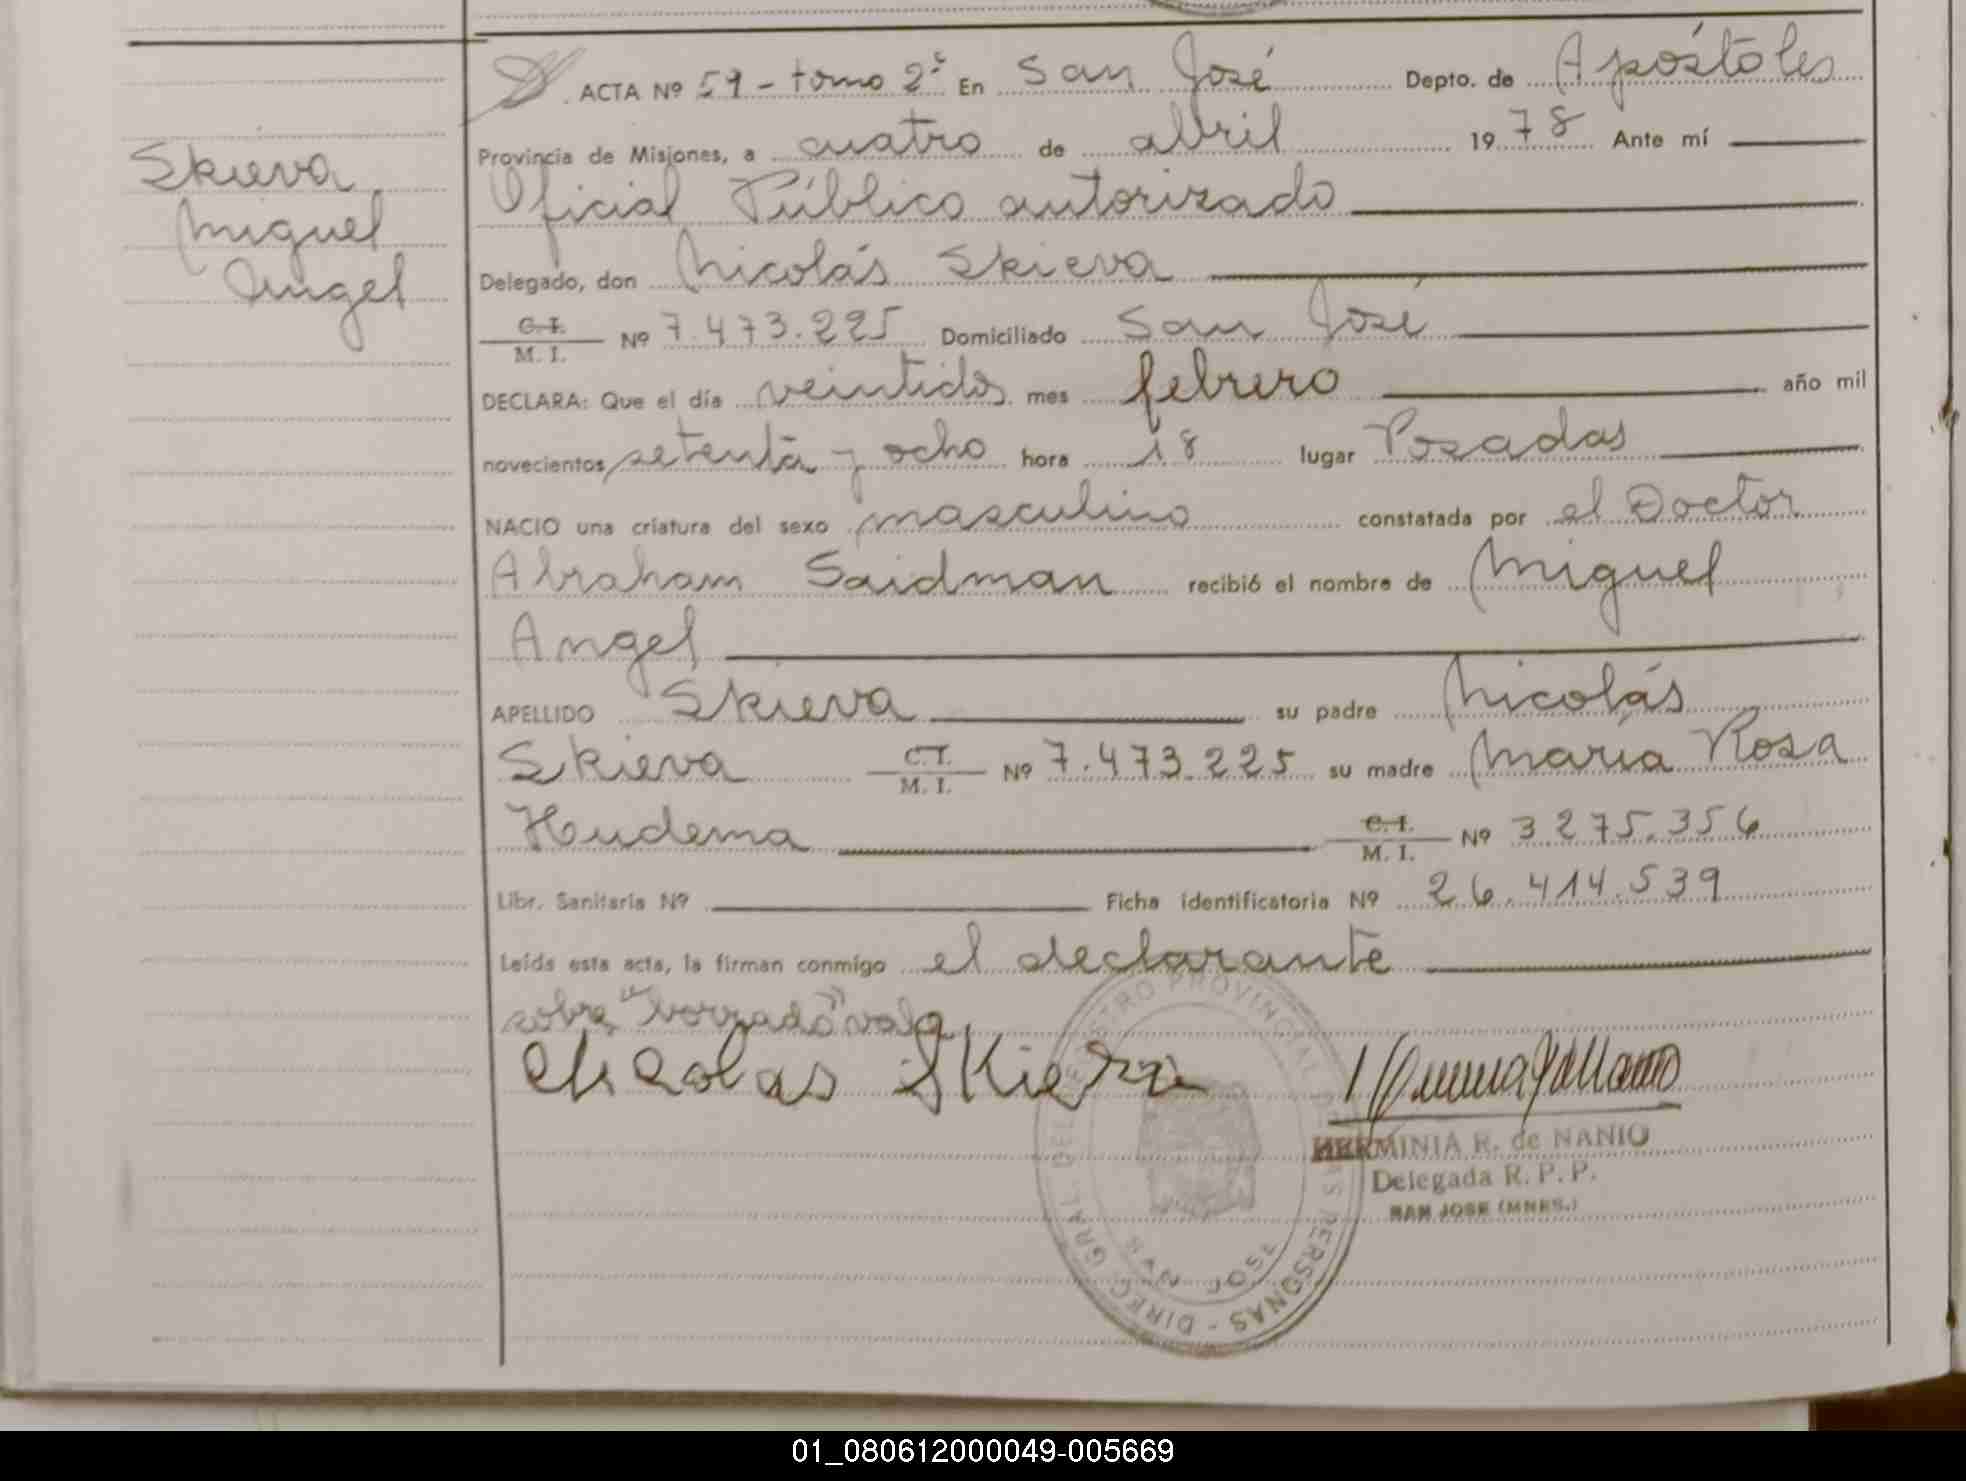 ACTA Nº 59 - tomo 2º En San José Depto. de Apóstoles
Provincia de Misiones, a cuatro de abril 1978 Ante mí
Oficial Público autorizado
Delegado, don Nicolás Skieva
C.I. M. I. Nº 7.473.225 Domiciliado San José
DECLARA: Que el día veintidos mes febrero año mil
novecientos setenta y ocho hora 18 lugar Posadas
NACIO una criatura del sexo masculino constatada por el Doctor
Abraham Saidman recibió el nombre de Miguel
Angel
APELLIDO Skieva su padre Nicolás
Skieva C.I. M. I. Nº 7.473.225 su madre María Rosa
Hudema C.I. M. I. Nº 3.275.356
Libr. Sanitaria Nº Ficha identificatoria Nº 26.414.539
Leída esta acta, la firman conmigo el declarante
sobre "borrado" vale
Nicolas Skieva
HERMINIA R. de NANIO
Delegada R. P. P.
SAN JOSE (MNES.)
DIREC. GRAL. DEL REGISTRO PROVINCIAL DE LAS PERSONAS -
SAN JOSE
Skieva
Miguel
Angel
01_080612000049-005669